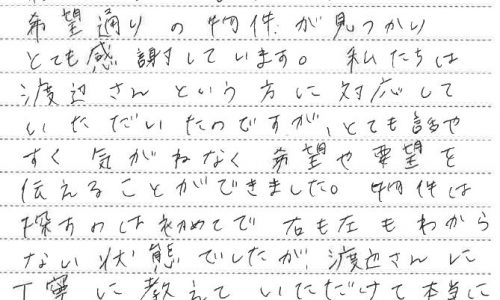 希望通りの物件が見つかり
とても感謝しています。私たちは
渡辺さんという方に対応して
いただいたのですが、とても話や
すく気がねなく希望や要望を
伝えることができました。物件は
探すのは初めてで右も左もわから
ない状態でしたが、渡辺さんに
丁寧に教えていただけて本当に